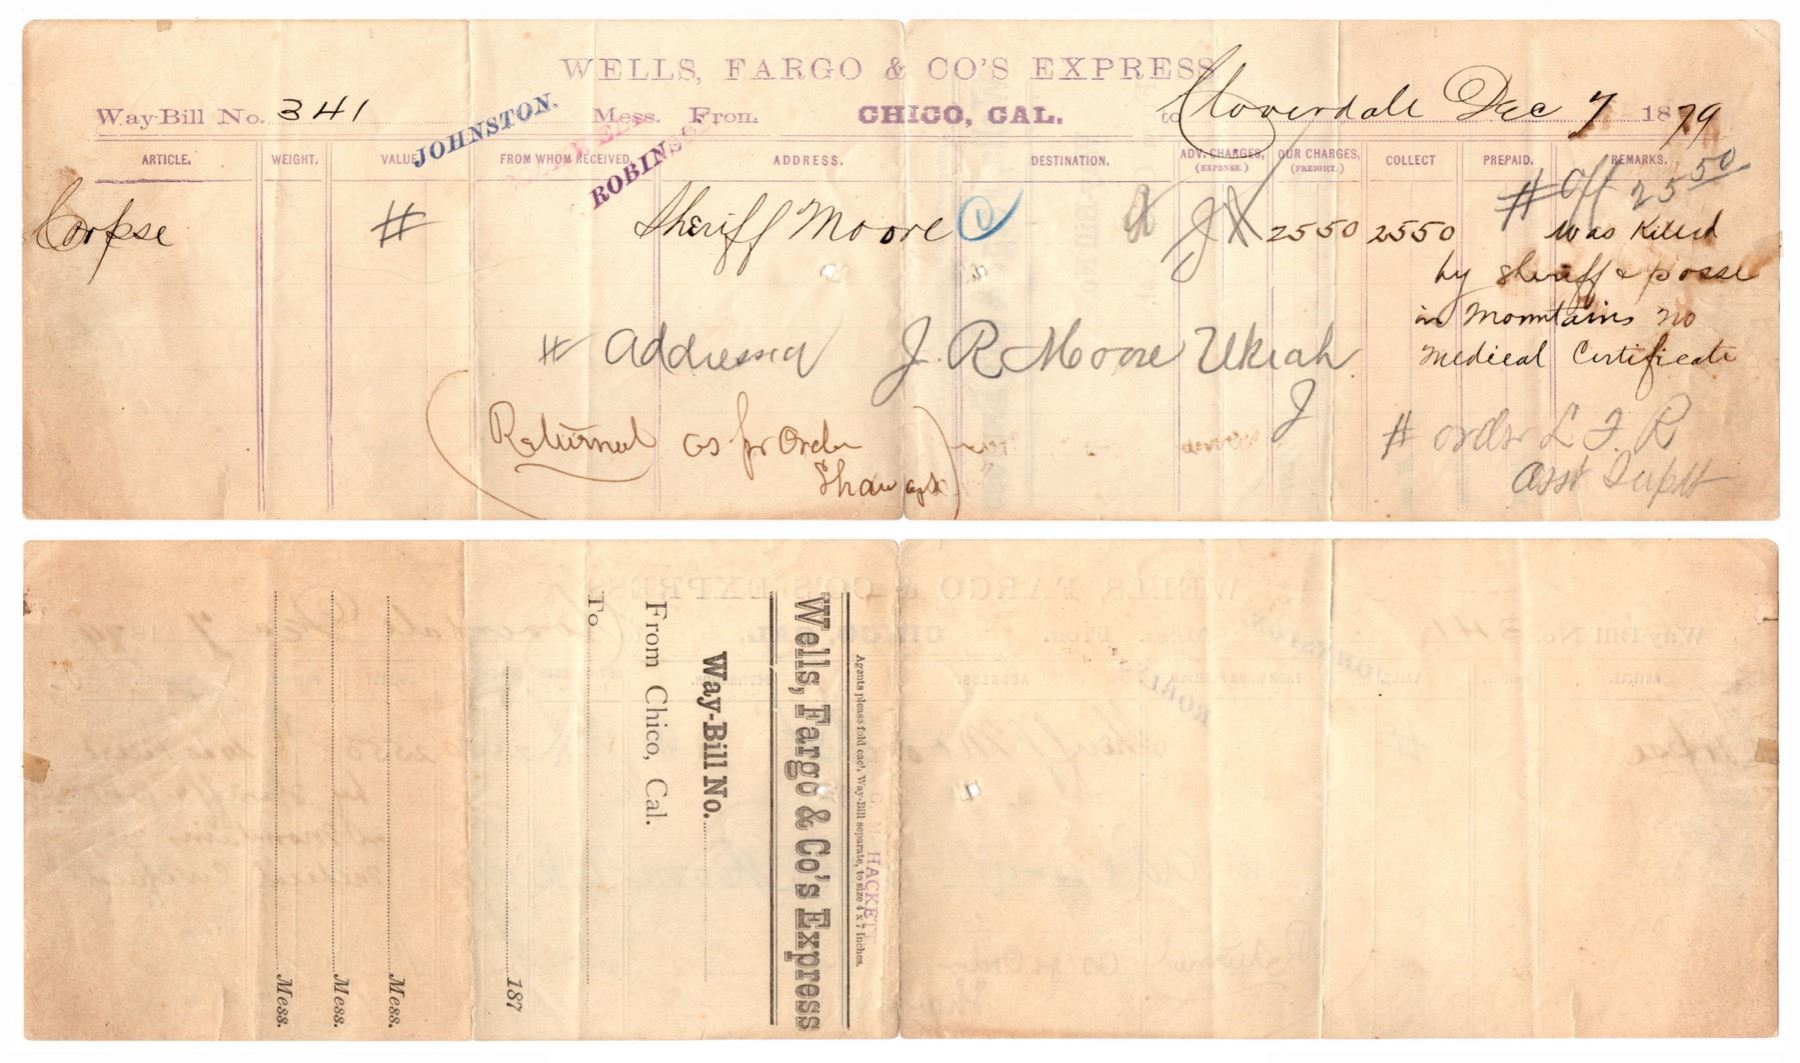 WELLS, FARGO & CO'S EXPRESS
Way-Bill No. 341 JOHNSTON. Mess. From CHICO, CAL. to Cloverdale Dec 7 1879
ROBINSON
ARTICLE. WEIGHT. VALUE FROM WHOM RECEIVED. ADDRESS. DESTINATION. ADV. CHARGES, (EXPENSE.) OUR CHARGES, (FREIGHT.) COLLECT PREPAID. REMARKS.
# Off 25 50
Corpse # Sheriff Moore 2550 2550 was Killed
by sheriff & posse
in Mountains no
Medical Certificate
# Addressed J. R Moore Ukiah
J
(Returned as pr Order
Shaw agt)
# order L. F. R
Asst Supdt
HACKETT
Agents please fold each Way-Bill separate, to size 4 x 7 inches.
Wells, Fargo & Co's Express
Way-Bill No.
From Chico, Cal.
To
187
Mess.
Mess.
Mess.